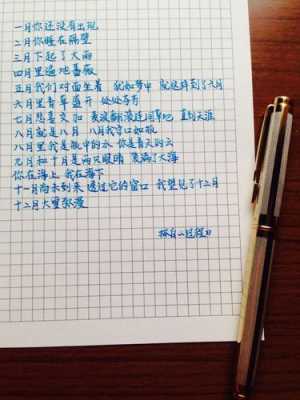 一月你还没有出现
二月你睡在隔壁
三月下起了大雨
四月里遍地蔷薇
五月我们对面坐着 犹如梦中 就这样到了六月
六月里青草盛开 处处芬芳
七月悲喜交加 麦浪翻滚连同草地 直到天涯
八月就是八月 八月我守口如瓶
八月里我是瓶中的水 你是青天的云
九月和十月是两只眼睛 装满了大海
你在海上 我在海下
十一月尚未到来 透过它的窗口 我望见了十二月
十二月大雪弥漫
摘自《过程》